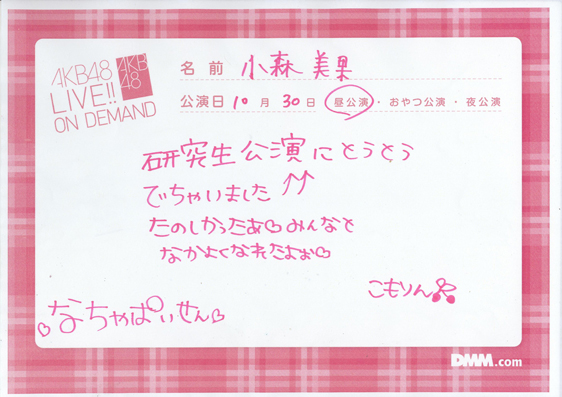 AKB48
LIVE!!
ON DEMAND
AKB
48
名前 小森美果
公演日 10月30日 昼公演・おやつ公演・夜公演
研究生公演にとうとう
でちゃいました
たのしかったあ♡みんなと
なかよくなれたよぉ♡
こもりん
♡なちゃぱいせん♡
DMM.com